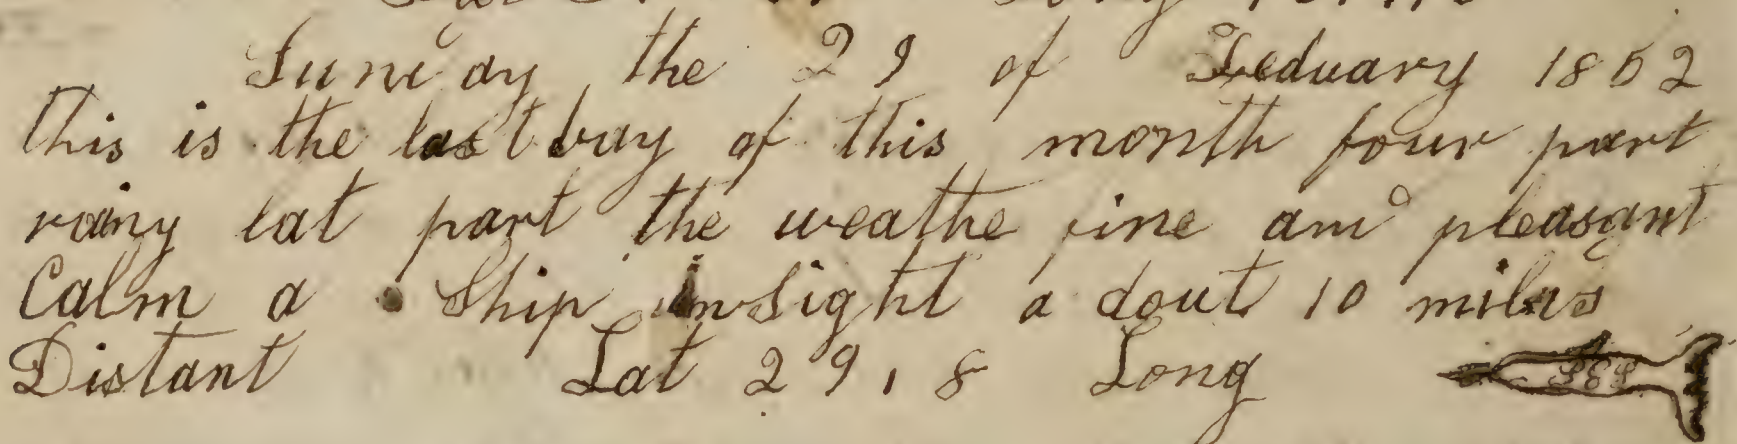 Long
Sunday the 29 of Feduary 1852
this is the last bay of this month four part
rainy lat part the weathe fine and pleasant
Calm a Ship in Sight a dout 10 miles
Distant Lat 29,8 Long